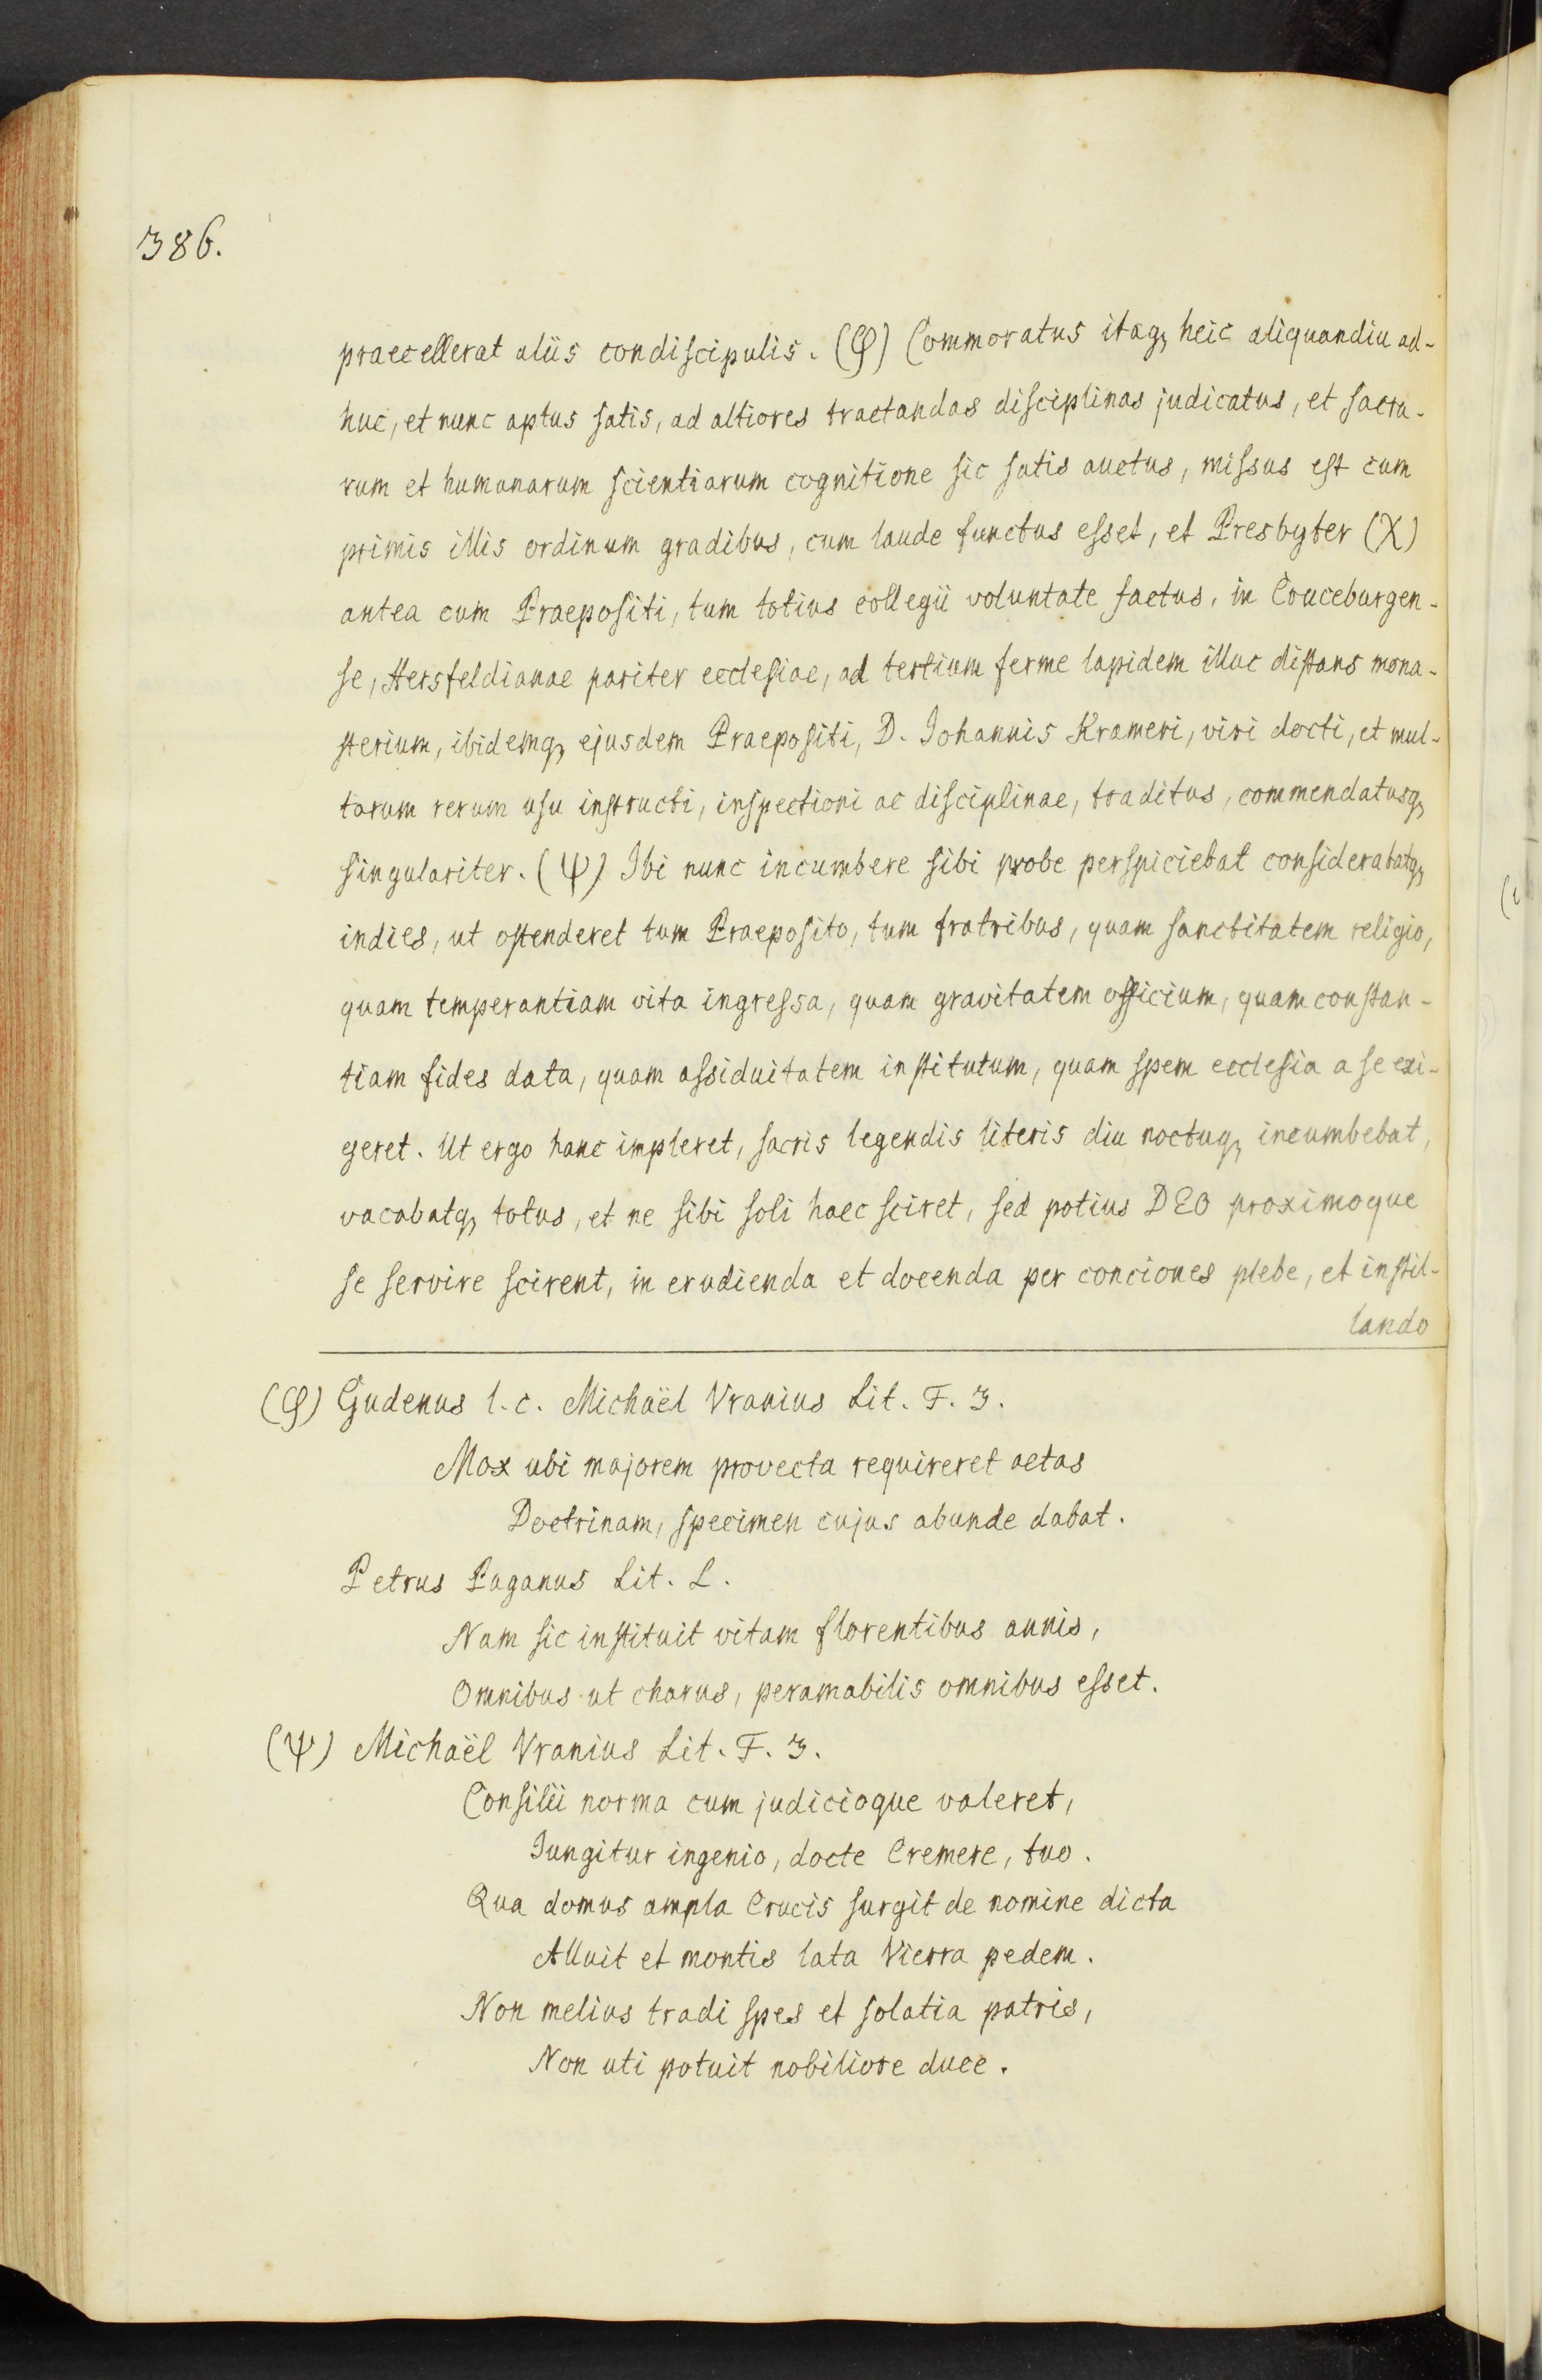 386.
praecellerat aliis condiscipulis. (φ) Commoratus itaq, heic aliquandiu ad-
huc, et nunc aptus satis, ad altiores tractandas disciplinas judicatus, et sacra-
rum et humanarum scientiarum cognitione sic satis auctus, missus est cum
primis illis ordinum gradibus, cum laude functus esset, et Presbyter (X)
antea cum Praepositi, tum totius collegii voluntate factus, in Cruceburgen-
se, Hersfeldianae pariter ecclesiae, ad tertium ferme lapidem illuc distans mona-
sterium, ibidemq, ejusdem Praepositi, D. Johannis Krameri, viri docti, et mul-
tarum rerum usu instructi, inspectioni ac disciplinae, traditus, commendatusq,
singulariter. (Ψ) Ibi nunc incumbere sibi probe perspiciebat considerabatq,
indies, ut ostenderet tum Praeposito, tum fratribus, quam sanctitatem religio,
quam temperantiam vita ingressa, quam gravitatem officium, quam constan-
tiam fides data, quam assiduitatem institutum, quam spem ecclesia a se exi-
geret. Ut ergo hanc impleret, sacris legendis literis diu noctuq, incumbebat,
vacabatq, totus, et ne sibi soli haec sciret, sed potius DEO proximoque
se servire scirent, in erudienda et docenda per conciones plebe, et instil-
lando
(φ) Gudenus l. c. Michaël Vranius Lit. F. 3.
Mox ubi majorem provecta requireret aetas
Doctrinam, specimen cujus abunde dabat.
Petrus Paganus Lit. L.
Nam sic instituit vitam florentibus annis,
Omnibus ut charus, peramabilis omnibus esset.
(Ψ) Michaël Vranius Lit. F. 3.
Consilii norma cum judicioque valeret,
Jungitur ingenio, docte Cremere, tuo.
Qua domus ampla Crucis surgit de nomine dicta
Alluit et montis lata Vierra pedem.
Non melius tradi spes et solatia patris,
Non uti potuit nobiliore duce.